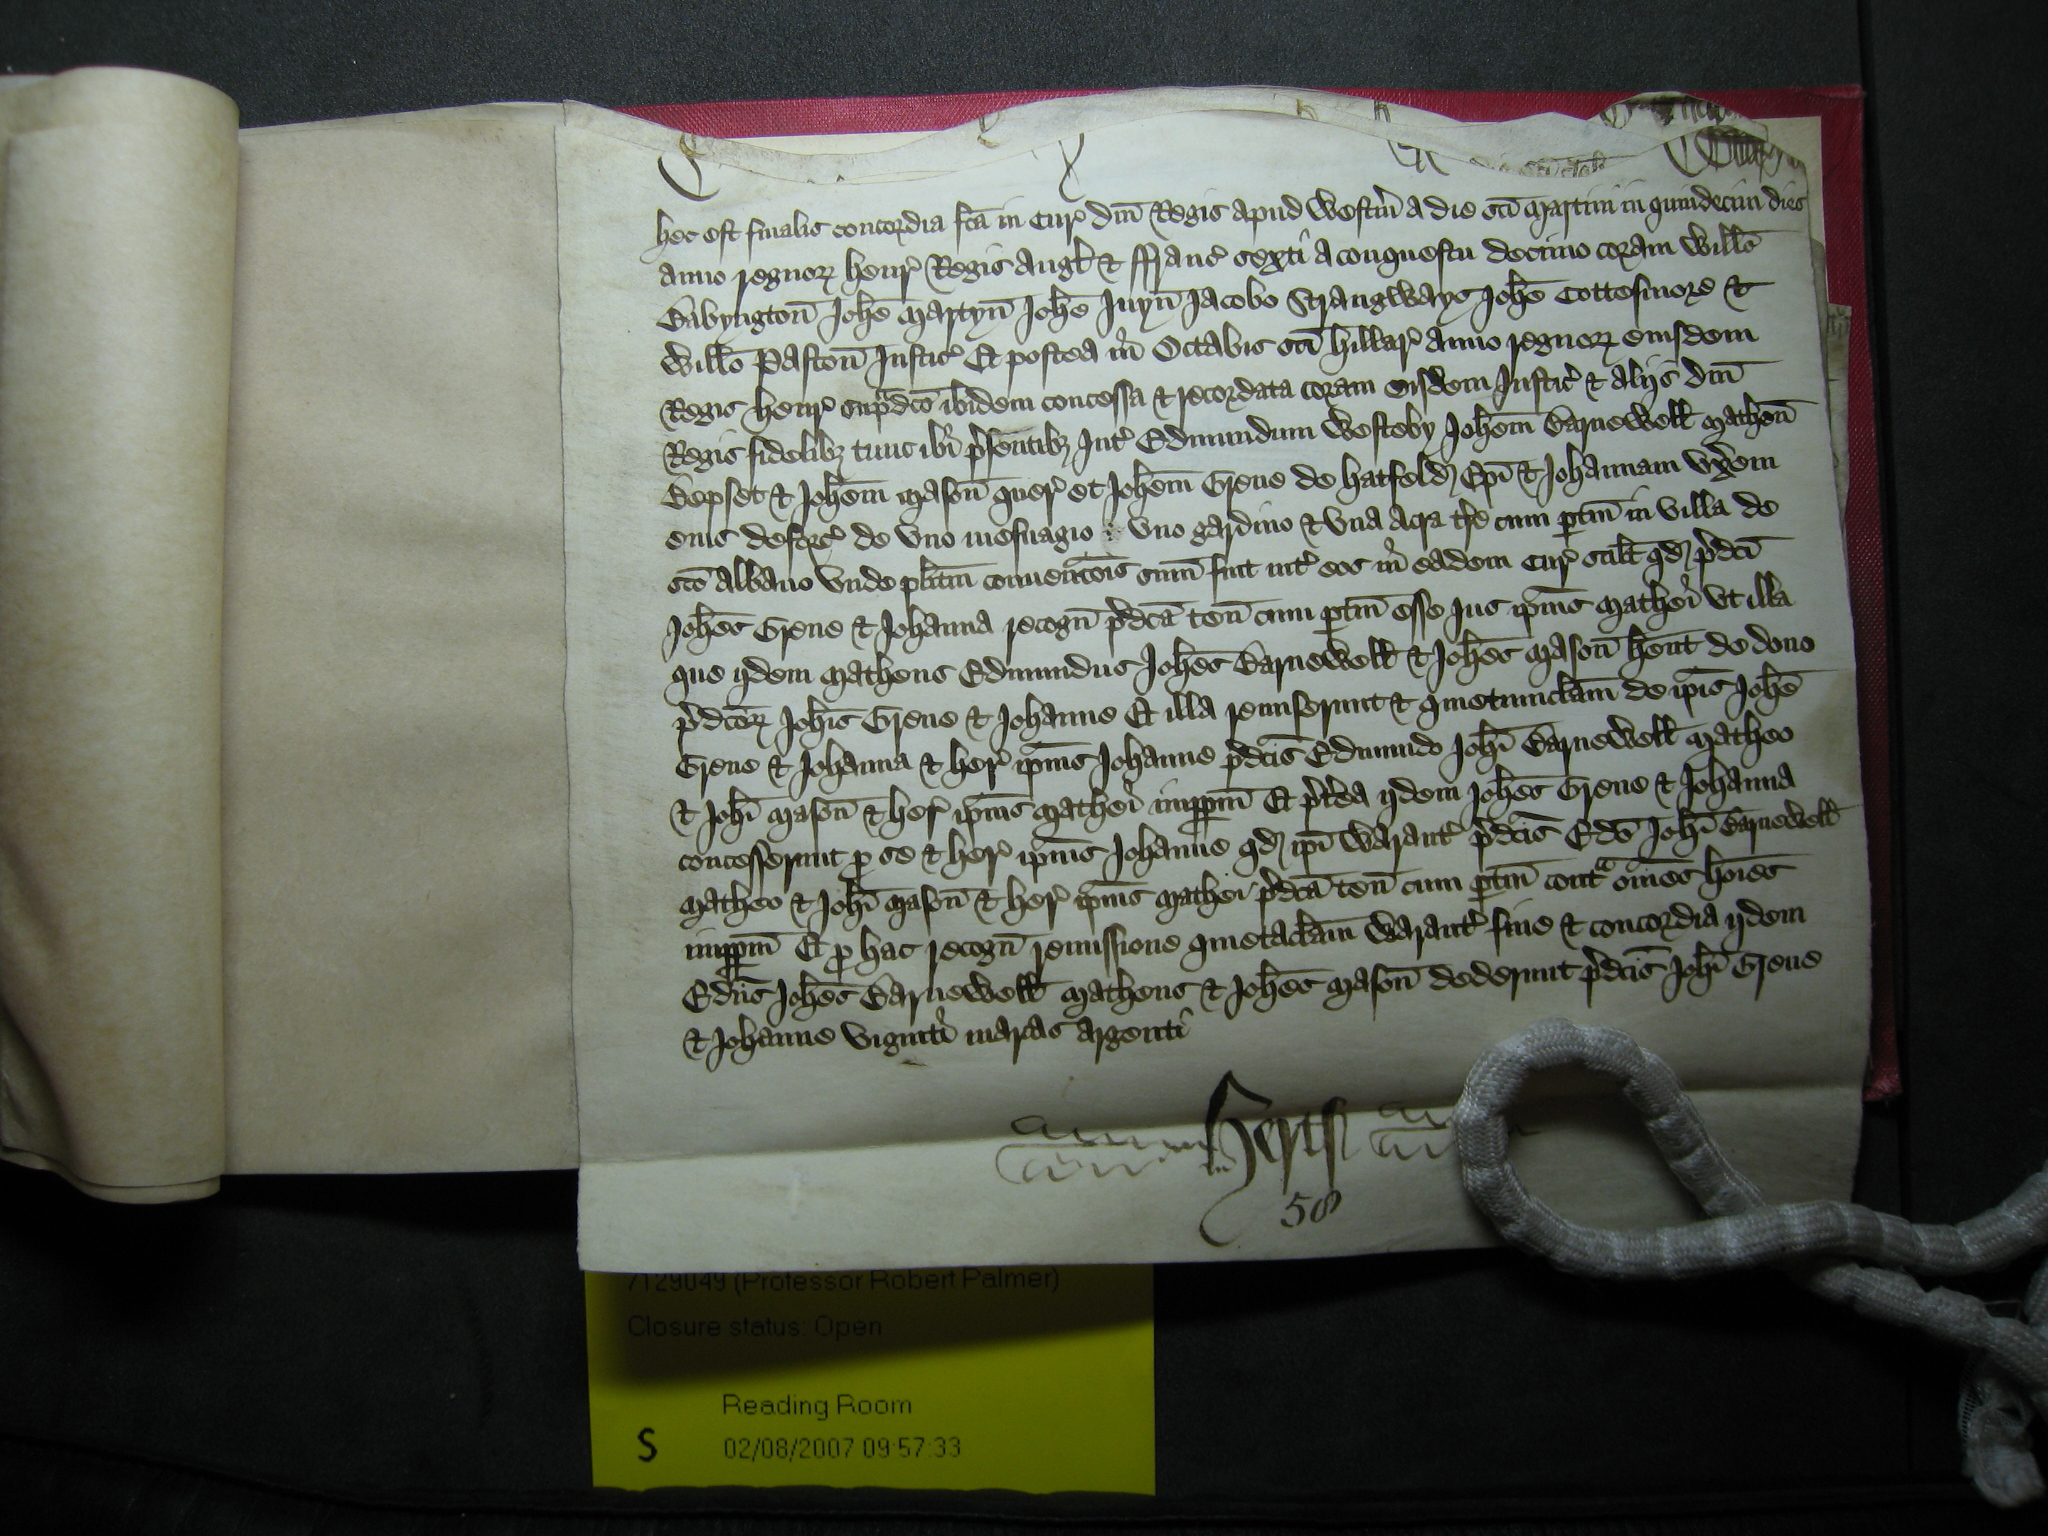 hec est finalis concordia fcā in Cur' dnī Regis apud Westm̄ a die scī Martini in quindecim dies
anno regnoꝝ Henr' Regis Angł & Ffranc' sexti a conquestu decimo coram Willō
Babyngton̄ Johē Martyn̄ Johē Juyn̄ Jacobo Strangways Johē Cottesmore &
Willō Paston̄ Justic' Et postea in Octabis scī Hillar' anno regnoꝝ eiusdem
Regis Henr' sup̄dcō ibidem concessa & recordata coram eisdem Justic' & alijs dnī
Regis fidelibꝫ tunc ibi p̄sentibꝫ Int' Edmundum Westeby Johem̄ Barnewell Matheū
Bepset & Johem̄ Mason̄ quer' et Johem̄ Grene de Hatfeld Ep̄i & Johannam vx̄em
eius deforc' de vno mesuagio vno gardino & vna acra tr̄e cum ptin̄ in villa de
Scō Albano vnde plitm̄ conuencōis sum̄ fuit int' eos in eadem Cur' scilt qd p̄dcī
Johēs Grene & Johanna recogn̄ p̄dcā ten̄ cum ptin̄ esse Jus ip̄ius Mathei vt illa
que ijdem Matheus Edmundus Johēs Barnewell & Johēs Mason̄ hēnt de dono
p̄dcoꝝ Johīs Grene & Johanne Et illa remiserunt & quietumclam̄ de ip̄is Johē
Grene & Johanna & her' ip̄ius Johanne p̄dcīs Edmundo Johī Barnewell Matheo
& Johī Mason̄ & her' ip̄ius Mathei imppm̄ Et p̄terea ijdem Johēs Grene & Johanna
concesserunt ꝓ se & her' ip̄ius Johanne qd ip̄i Warant' p̄dcīs Edō Johī Barnewell
Matheo & Johī Mason̄ & her' ip̄ius Mathei p̄dcā ten̄ cum ptin̄ contᵃ om̄es hoīes
imppm̄ Et ꝓ hac recogn̄ remissione quietaclam̄ Warant' fine & concordia ijdem
Edūs Johēs Barnewell Matheus & Johēs Mason̄ dederunt p̄dcīs Johī Grene
& Johanne viginti marcas argenti
Hertf
58
7129049 (Professor Robert Palmer)
Closure status: Open
Reading Room
S 02/08/2007 09:57:33